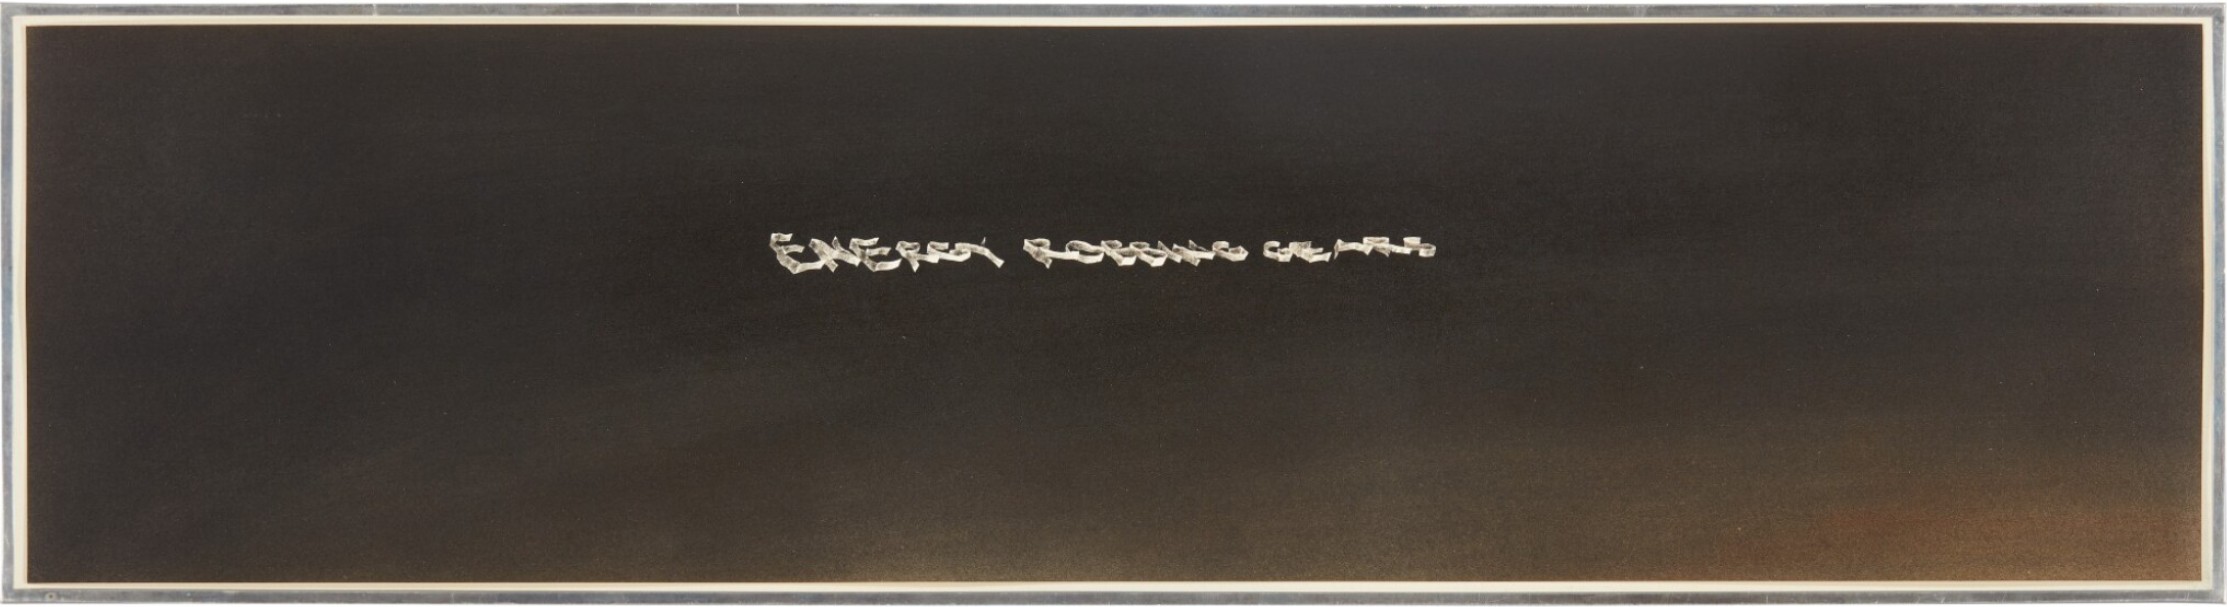 ENERGY ROBBING GEARS